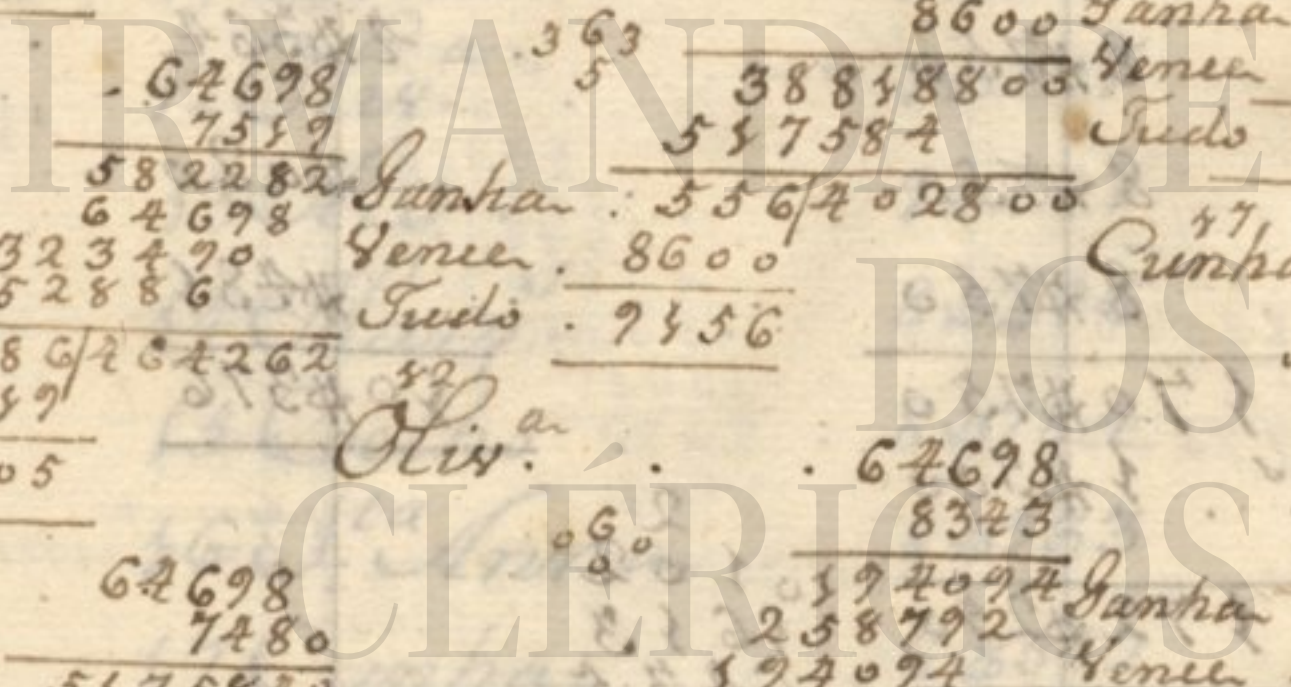 IRMANDADE
DOS
CLÉRIGOS
. 64698
7519
582282
64698
323490
52886
86/464262
19
05
64698
7480
363
5
8600
38818800
517584
Ganha . 556/402800
Vence . 8600
Tudo . 9156
12
Oliv.ª . . 64698
8343
060
0
194094
258792
194094
Ganha
Vence
Tudo
17
Cunha
Ganha
Vence